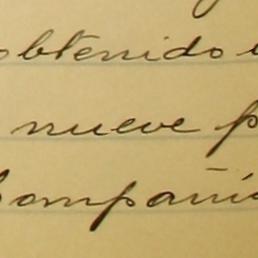 obtenido
nueve p
Compañía